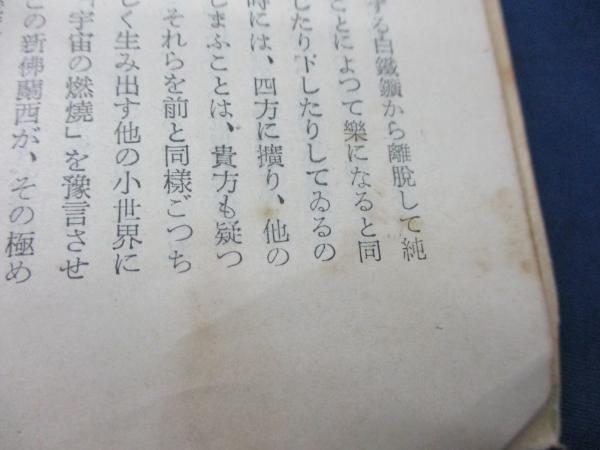 する白鐵鑛から離脱して純
ことによつて樂になると同
したり下したりしてゐるの
時には、四方に擴り、他の
しまふことは、貴方も疑つ
それらを前と同様ごつち
しく生み出す他の小世界に
「宇宙の燃燒」を豫言させ
この新佛蘭西が、その極め